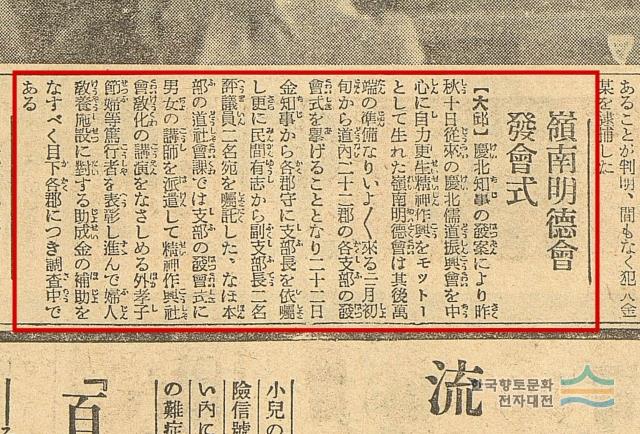 あることが判明、間もなく犯人金
某を逮捕した
嶺南明德會
發會式
【大邱】慶北知事の發案により昨
秋十日從來の慶北儒道振興會を中
心に自力更生精神作興をモットー
として生れた嶺南明德會は其後萬
端の準備なりいよ〱來る三月初
旬から道內二十二郡の各支部の發
會式を擧げることとなり二十二日
金知事から各郡守に支部長を依囑
し更に民間有志から副支部長二名
評議員二名宛を囑託した、なほ本
部の道社會課では支部の發會式に
男女の講師を派遣して精神作興社
會敎化の講演をなさしめる外孝子
節婦等篤行者を表彰し進んで婦人
敎養施設に對する助成金の補助を
なすべく目下各郡につき調査中で
ある
流
小兒の
險信號
い內に
の難症
「百
한국향토문화
전자대전